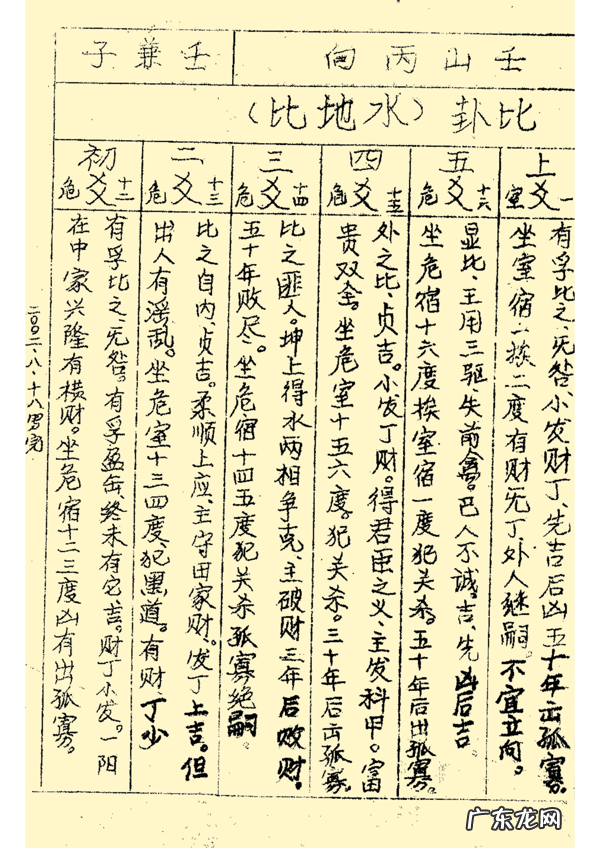 壬山丙向
壬兼子
比卦（水地比）
上
爻
室
一
有孚比之、旡咎、小发财丁、先吉后凶五十年出孤寡。
坐室宿一挨二度有财旡丁、外人继嗣。不宜立向。
五
爻
危
十六
显比、王用三驱、失前禽。巴人不诚。吉、先凶后吉
坐危宿十六度挨室宿一度犯关杀。五十年后出孤寡。
四
爻
危
十五
外之比、贞吉。小发丁财。得君臣之义、主发科甲。富
贵双全。坐危室十五六度。犯关杀。三十年后出孤寡。
三
爻
危
十四
比之匪人。坤上得水两相争克、主破财三年后败财。
五十年败尽。坐危宿十四五度犯关杀孤寡绝嗣
二
爻
危
十三
比之自内、贞吉。柔顺上应、主守田家财。发丁上吉。但
出人有淫乱。坐危室十三四度、犯黑道。有财丁少
初
爻
危
十二
有孚比之、旡咎。有孚盈缶、终未有它、吉。财丁小发。一阳
在中家兴隆有横财。坐危宿十二三度凶有出孤寡。
二〇〇二、八、十八
广东龙网